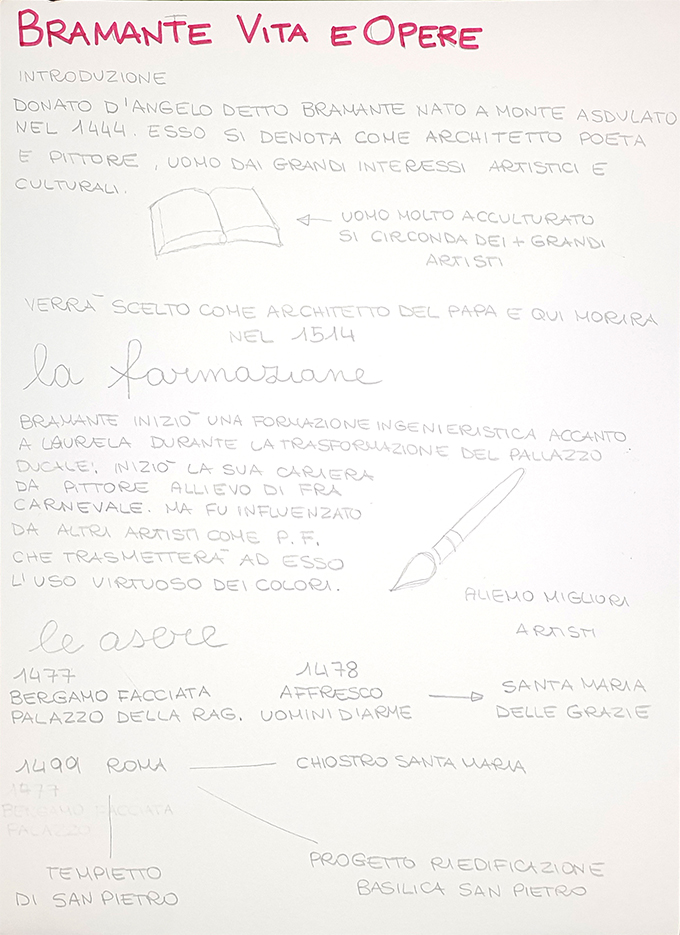 BRAMANTE VITA E OPERE
INTRODUZIONE
DONATO D'ANGELO DETTO BRAMANTE NATO A MONTE ASDULATO
NEL 1444. ESSO SI DENOTA COME ARCHITETTO POETA
E PITTORE, UOMO DAI GRANDI INTERESSI ARTISTICI E
CULTURALI.
UOMO MOLTO ACCULTURATO
SI CIRCONDA DEI + GRANDI
ARTISTI
VERRA SCELTO COME ARCHITETTO DEL PAPA E QUI MORIRA
NEL 1514
la formazione
BRAMANTE INIZIÒ UNA FORMAZIONE INGENIERISTICA ACCANTO
A LAURELA DURANTE LA TRASFORMAZIONE DEL PALLAZZO
DUCALE; INIZIÒ LA SUA CARIERA
DA PITTORE ALLIEVO DI FRA
CARNEVALE. MA FU INFLUENZATO
DA ALTRI ARTISTI COME P.F.
CHE TRASMETTERÀ AD ESSO
L'USO VIRTUOSO DEI COLORI.
ALIEMO MIGLIORI
ARTISTI
le
1477
BERGAMO FACCIATA
PALAZZO DELLA RAG.
1478
AFFRESCO
UOMINI DIARME
SANTA MARIA
DELLE GRAZIE
1499 ROMA
CHIOSTRO SANTA MARIA
1477
BERGAMO FACCIATA
PALAZZO
TEMPIETTO
DI SAN PIETRO
PROGETTO RIEDIFICAZIONE
BASILICA SAN PIETRO